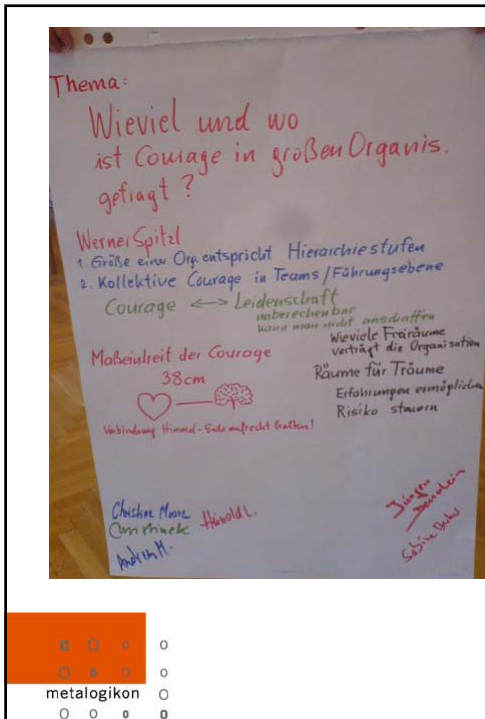 Thema:
Wieviel und wo
ist Courage in großen Organis.
gefragt?
Werner Spitzl
1. Größe einer Org. entspricht Hierarchiestufen
2. Kollektive Courage in Teams/Führungsebene
Courage <-> Leidenschaft
unberechenbar
kann man nicht anschaffen
Wieviele Freiräume
verträgt die Organisation
Maßeinheit der Courage
38cm
Räume für Träume
Erfahrungen ermöglichen
Risiko steuern
Verbindung Himmel-Erde aufrecht halten!
Christine
Andreas M.
Harald L.
Jürgen
Sabine
metalogikon